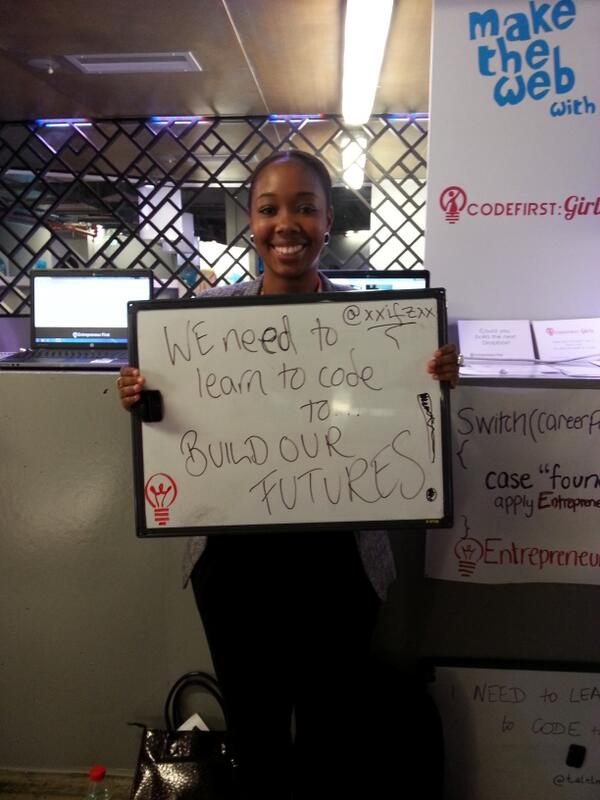 make
the
web
with
CODEFIRST: Girl
@xxifzxx
WE need to
learn to code
to...
BUILD OUR
FUTURES!
Entrepreneur First
Could you
build the next
Dropbox?
Switch(career
{
case "foun
apply Entreprene
}
Entrepreneu
I NEED to LEA
to CODE